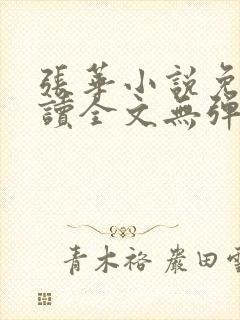 張華小説免
讀全文無彈
青木裕 嚴田雲